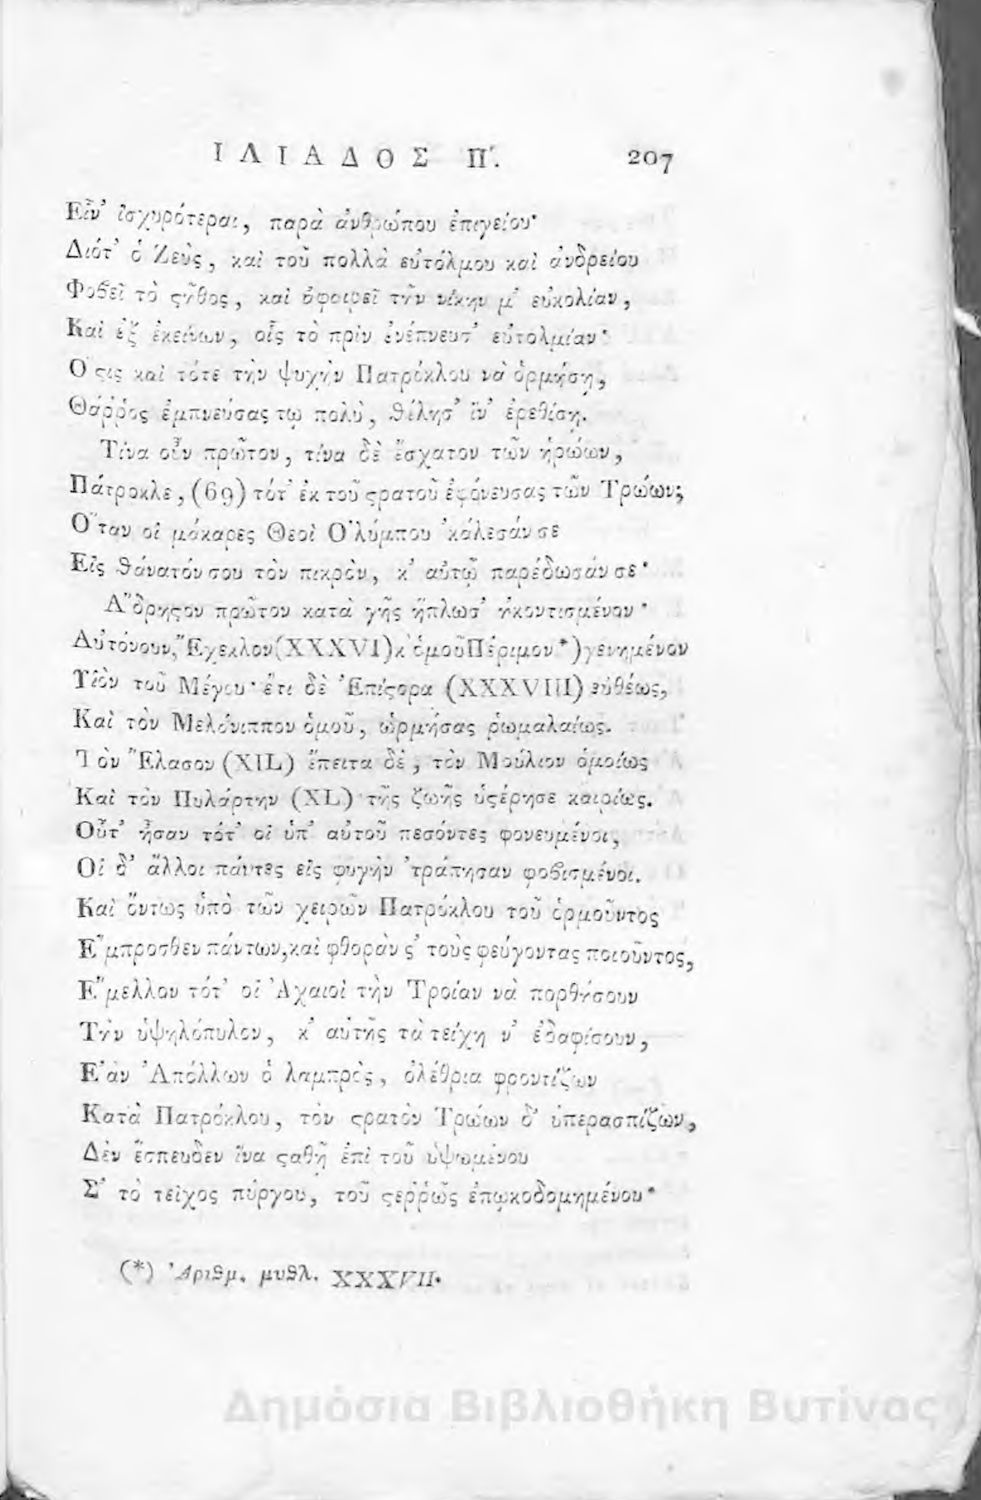 ΙΛΙΑΔΟΣ Π΄. 207
Εἶν' ἰσχυρότεραι, παρὰ ἀνθρώπου ἐπιγείου·
Διότ' ὁ Ζεὺς, καὶ τοῦ πολλὰ εὐτόλμου καὶ ἀνδρείου
Φοβεῖ τὸ ςῆθος, καὶ ἀφαιρεῖ τὴν νίκην μ' εὐκολίαν,
Καὶ ἐξ ἐκείνων, οἷς τὸ πρὶν ἐνέπνευσ' εὐτολμίαν·
Ὅςις καὶ τότε τὴν ψυχὴν Πατρόκλου νὰ ὁρμήσῃ,
Θάῤῥος ἐμπνεύσας τῳ πολὺ, θέλησ' ἵν' ἐρεθίσῃ.
Τίνα οὖν πρῶτον, τίνα δὲ ἔσχατον τῶν ἡρώων,
Πάτροκλε, (69) τότ' ἐκ τοῦ ςρατοῦ ἐφόνευσας τῶν Τρώων;
Ὅταν οἱ μάκαρες Θεοὶ Ὀλύμπου 'κάλεσάν σε
Εἰς θάνατόν σου τὸν πικρὸν, κ' αὐτῷ παρέδωσάν σε·
Ἄδρηςον πρῶτον κατὰ γῆς ἥπλωσ' ἠκοντισμένον·
Αὐτόνουν, Ἔχεκλον (XXXVI) κ' ὁμοῦ Πέριμον*) γενημένον
Υἱὸν τοῦ Μέγου· ἔτι δὲ Ἐπίςορα (XXXVIII) εὐθέως,
Καὶ τὸν Μελάνιππον ὁμοῦ, ὡρμήσας ῥωμαλαίως.
Τὸν Ἔλασον (XIL) ἔπειτα δὲ, τὸν Μούλιον ὁμοίως
Καὶ τὸν Πυλάρτην (XL) τῆς ζωῆς ὑςέρησε καιρίως.
Οὗτ' ἦσαν τότ' οἱ ὑπ' αὐτοῦ πεσόντες φονευμένοι,
Οἱ δ' ἄλλοι πάντες εἰς φυγὴν 'τράπησαν φοβισμένοι.
Καὶ ὄντως ὑπὸ τῶν χειρῶν Πατρόκλου τοῦ ὁρμοῦντος
Ἔμπροσθεν πάντων, καὶ φθορὰν ς' τοὺς φεύγοντας ποιοῦντος,
Ἔμελλον τότ' οἱ Ἀχαιοὶ τὴν Τροίαν νὰ πορθήσουν
Τὴν ὑψηλόπυλον, κ' αὐτῆς τὰ τείχη ν' ἐδαφίσουν,
Ἐὰν Ἀπόλλων ὁ λαμπρὸς, ὀλέθρια φροντίζων
Κατὰ Πατρόκλου, τὸν ςρατὸν Τρώων δ' ὑπερασπίζων,
Δὲν ἔσπευδεν ἵνα ςαθῇ ἐπὶ τοῦ ὑψωμένου
Σ' τὸ τεῖχος πύργου, τοῦ ςεῤῥῶς ἐπῳκοδομημένου·
(*) Ἀριθμ. μυθλ. XXXVII.
Δημόσια Βιβλιοθήκη Βυτίνας